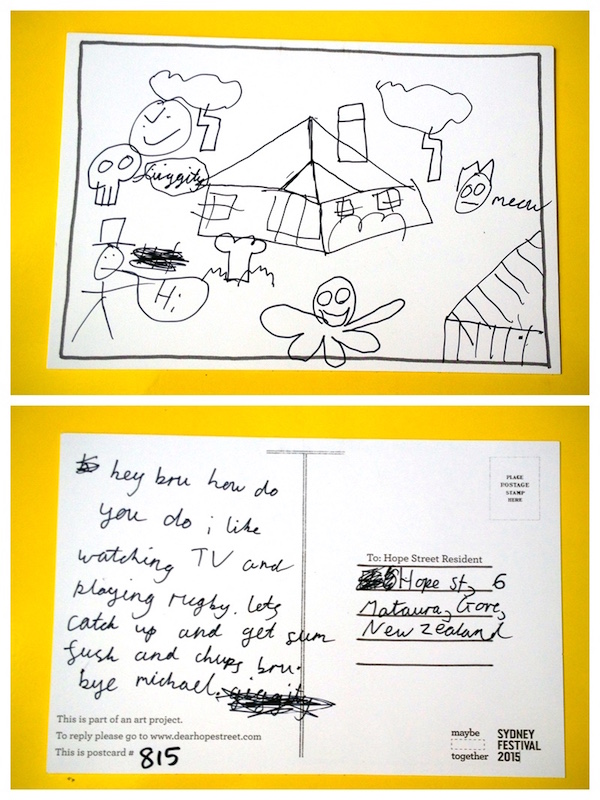 giggity
meow
Hi
hey bru how do
you do i like
watching TV and
playing rugby. lets
catch up and get sum
fush and chups bru.
bye michael.
This is part of an art project.
To reply please go to www.dearhopestreet.com
This is postcard # 815
PLACE
POSTAGE
STAMP
HERE
To: Hope Street Resident
Hope st, 6
Mataura, Gore,
New Zealand
maybe
together
SYDNEY
FESTIVAL
2015